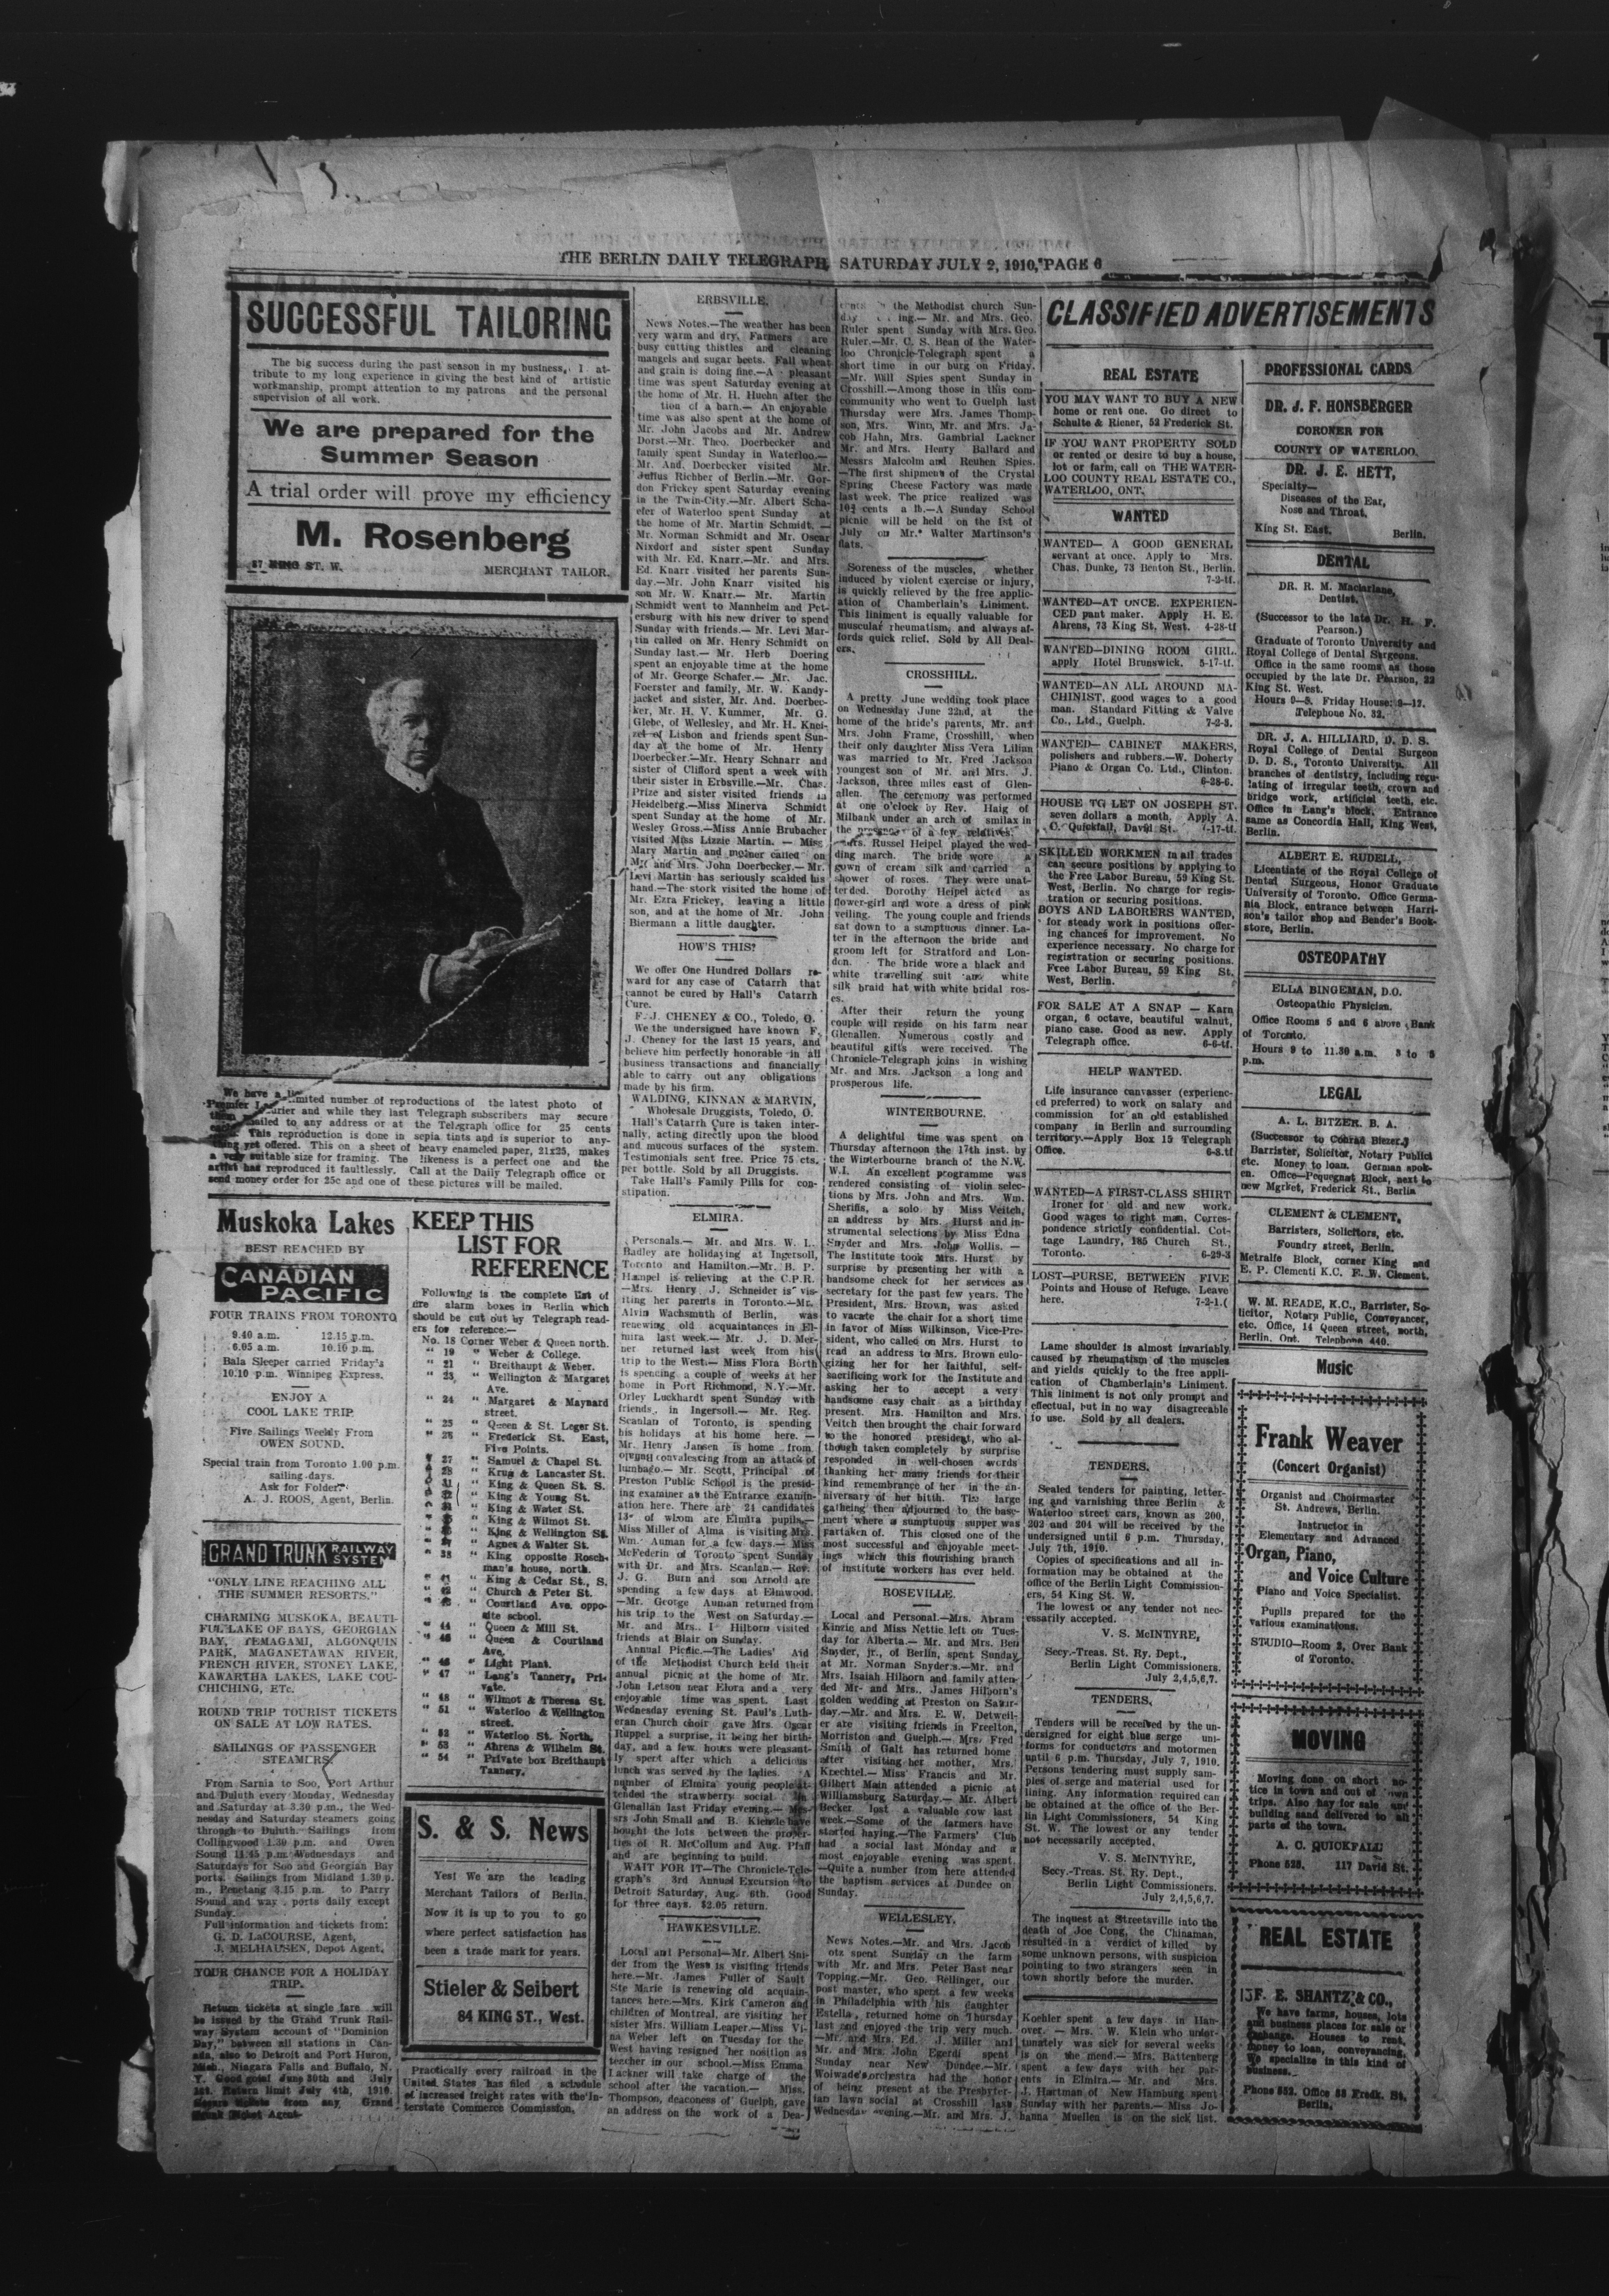 THE BERLIN DAILY TELEGRAPH, SATURDAY JULY 2, 1910, PAGE 6
SUCCESSFUL TAILORING
The big success during the past season in my business, I at-
tribute to my long experience in giving the best kind of artistic
workmanship, prompt attention to my patrons and the personal
supervision of all work.
We are prepared for the
Summer Season
A trial order will prove my efficiency
M. Rosenberg
ST. W. MERCHANT TAILOR.
We have a limited number of reproductions of the latest photo of
Premier and while they last Telegraph subscribers may secure
mailed to any address or at the Telegraph office for 25 cents
This reproduction is done in sepia tints and is superior to any-
thing yet offered. This on a sheet of heavy enameled paper, 21x25, makes
a very suitable size for framing. The likeness is a perfect one and the
artist has reproduced it faultlessly. Call at the Daily Telegraph office or
send money order for 25c and one of these pictures will be mailed.
Muskoka Lakes
BEST REACHED BY
CANADIAN
PACIFIC
FOUR TRAINS FROM TORONTO
9.40 a.m. 12.15 p.m.
6.05 a.m. 10.10 p.m.
Bala Sleeper carried Friday's
10.10 p.m. Winnipeg Express.
ENJOY A
COOL LAKE TRIP.
Five Sailings Weekly From
OWEN SOUND.
Special train from Toronto 1.00 p.m.
sailing days.
Ask for Folder.
A. J. ROOS, Agent, Berlin.
GRAND TRUNK RAILWAY
SYSTEM
"ONLY LINE REACHING ALL
THE SUMMER RESORTS."
CHARMING MUSKOKA, BEAUTI-
FUL LAKE OF BAYS, GEORGIAN
BAY, TEMAGAMI, ALGONQUIN
PARK, MAGANETAWAN RIVER,
FRENCH RIVER, STONEY LAKE,
KAWARTHA LAKES, LAKE COU-
CHICHING, ETc.
ROUND TRIP TOURIST TICKETS
ON SALE AT LOW RATES.
SAILINGS OF PASSENGER
STEAMERS.
From Sarnia to Soo, Port Arthur
and Duluth every Monday, Wednesday
and Saturday at 3.30 p.m., the Wed-
nesday and Saturday steamers going
through to Duluth. Sailings from
Collingwood 1.30 p.m. and Owen
Sound 11.45 p.m. Wednesdays and
Saturdays for Soo and Georgian Bay
ports. Sailings from Midland 1.30 p.
m., Penetang 3.15 p.m. to Parry
Sound and way ports daily except
Sunday.
Full information and tickets from:
G. D. LaCOURSE, Agent,
J. MELHAUSEN, Depot Agent.
YOUR CHANCE FOR A HOLIDAY
TRIP.
Return tickets at single fare will
be issued by the Grand Trunk Rail-
way System account of "Dominion
Day," between all stations in Can-
ada, also to Detroit and Port Huron,
Mich., Niagara Falls and Buffalo, N.
Y. Good going June 30th and July
1st. Return limit July 4th, 1910.
Secure tickets from any Grand
Trunk Ticket Agent.
KEEP THIS
LIST FOR
REFERENCE
Following is the complete list of
fire alarm boxes in Berlin which
should be cut out by Telegraph read-
ers for reference:—
No. 18 Corner Weber & Queen north.
" 19 " Weber & College.
" 21 " Breithaupt & Weber.
" 23 " Wellington & Margaret
Ave.
" 24 " Margaret & Maynard
street.
" 25 " Queen & St. Leger St.
" 26 " Frederick St. East,
Five Points.
" 27 " Samuel & Chapel St.
" 28 " Krug & Lancaster St.
" 31 " King & Queen St. S.
" 32 " King & Young St.
" " King & Water St.
" " King & Wilmot St.
" " King & Wellington St.
" 37 " Agnes & Walter St.
" 38 " King opposite Rosch-
man's house, north.
" 41 " King & Cedar St., S.
" 42 " Church & Peter St.
" 43 " Courtland Ave. oppo-
site school.
" 44 " Queen & Mill St.
" 45 " Queen & Courtland
Ave.
" 46 " Light Plant.
" 47 " Lang's Tannery, Pri-
vate.
" 48 " Wilmot & Theresa St.
" 51 " Waterloo & Wellington
street.
" 52 " Waterloo St. North.
" 53 " Ahrens & Wilhelm St.
" 54 " Private box Breithaupt
Tannery.
S. & S. News
Yes! We are the leading
Merchant Tailors of Berlin.
Now it is up to you to go
where perfect satisfaction has
been a trade mark for years.
Stieler & Seibert
84 KING ST., West.
Practically every railroad in the
United States has filed a schedule
of increased freight rates with the In-
terstate Commerce Commission.
ERBSVILLE.
News Notes.—The weather has been
very warm and dry. Farmers are
busy cutting thistles and cleaning
mangels and sugar beets. Fall wheat
and grain is doing fine.—A pleasant
time was spent Saturday evening at
the home of Mr. H. Huehn after the
tion of a barn.— An enjoyable
time was also spent at the home of
Mr. John Jacobs and Mr. Andrew
Dorst.—Mr. Theo. Doerbecker and
family spent Sunday in Waterloo.—
Mr. And. Doerbecker visited Mr.
Julius Richber of Berlin.—Mr. Gor-
don Frickey spent Saturday evening
in the Twin-City.—Mr. Albert Scha-
efer of Waterloo spent Sunday at
the home of Mr. Martin Schmidt. —
Mr. Norman Schmidt and Mr. Oscar
Nixdorf and sister spent Sunday
with Mr. Ed. Knarr.—Mr. and Mrs.
Ed. Knarr visited her parents Sun-
day.—Mr. John Knarr visited his
son Mr. W. Knarr.— Mr. Martin
Schmidt went to Mannheim and Pet-
ersburg with his new driver to spend
Sunday with friends.— Mr. Levi Mar-
tin called on Mr. Henry Schmidt on
Sunday last.— Mr. Herb Doering
spent an enjoyable time at the home
of Mr. George Schafer.— Mr. Jac.
Foerster and family, Mr. W. Kandy-
jacket and sister, Mr. And. Doerbec-
ker, Mr. H. V. Kummer, Mr. G.
Glebe, of Wellesley, and Mr. H. Knei-
zel of Lisbon and friends spent Sun-
day at the home of Mr. Henry
Doerbecker.—Mr. Henry Schnarr and
sister of Clifford spent a week with
their sister in Erbsville.—Mr. Chas.
Prize and sister visited friends in
Heidelberg.—Miss Minerva Schmidt
spent Sunday at the home of Mr.
Wesley Gross.—Miss Annie Brubacher
visited Miss Lizzie Martin. — Miss
Mary Martin and mother called on
Mr. and Mrs. John Doerbecker.— Mr.
Levi Martin has seriously scalded his
hand.—The stork visited the home of
Mr. Ezra Frickey, leaving a little
son, and at the home of Mr. John
Biermann a little daughter.
HOW'S THIS?
We offer One Hundred Dollars re-
ward for any case of Catarrh that
cannot be cured by Hall's Catarrh
Cure.
F. J. CHENEY & CO., Toledo, O.
We the undersigned have known F.
J. Cheney for the last 15 years, and
believe him perfectly honorable in all
business transactions and financially
able to carry out any obligations
made by his firm.
WALDING, KINNAN & MARVIN,
Wholesale Druggists, Toledo, O.
Hall's Catarrh Cure is taken inter-
nally, acting directly upon the blood
and mucous surfaces of the system.
Testimonials sent free. Price 75 cts.
per bottle. Sold by all Druggists.
Take Hall's Family Pills for con-
stipation.
ELMIRA.
Personals.— Mr. and Mrs. W. I.
Badley are holidaying at Ingersoll,
Toronto and Hamilton.—Mr. B. P.
Hampel is relieving at the C.P.R.
—Mrs. Henry J. Schneider is vis-
iting her parents in Toronto.—Mr.
Alvin Wachsmuth of Berlin, was
renewing old acquaintances in El-
mira last week.— Mr. J. D. Mer-
ner returned last week from his
trip to the West.— Miss Flora Borth
is spending a couple of weeks at her
home in Port Richmond, N.Y.—Mr.
Orley Luckhardt spent Sunday with
friends in Ingersoll.— Mr. Reg.
Scanlan of Toronto, is spending
his holidays at his home here. —
Mr. Henry Jansen is home from
convalescing from an attack of
lumbago.— Mr. Scott, Principal of
Preston Public School is the presid-
ing examiner as the Entrance examin-
ation here. There are 24 candidates
13 of whom are Elmira pupils.—
Miss Miller of Alma is visiting Mrs.
Wm. Auman for a few days.— Miss
McFederin of Toronto spent Sunday
with Dr. and Mrs. Scanlan.— Rev.
J. G. Burn and son Arnold are
spending a few days at Elmwood.
—Mr. George Auman returned from
his trip to the West on Saturday.—
Mr. and Mrs. I Hilborn visited
friends at Blair on Sunday.
Annual Picnic.—The Ladies' Aid
of the Methodist Church held their
annual picnic at the home of Mr.
John Letson near Elora and a very
enjoyable time was spent. Last
Wednesday evening St. Paul's Luth-
eran Church choir gave Mrs. Oscar
Ruppel a surprise, it being her birth-
day, and a few hours were pleasant-
ly spent after which a delicious
lunch was served by the ladies. A
number of Elmira young people at-
tended the strawberry social in
Glenallan last Friday evening.— Mes-
srs John Small and B. Kienzle have
bought the lots between the proper-
ties of R. McCollum and Aug. Pfaff
and are beginning to build.
WAIT FOR IT—The Chronicle-Tele-
graph's 3rd Annual Excursion to
Detroit Saturday, Aug. 6th. Good
for three days. $2.05 return.
HAWKESVILLE.
Local and Personal—Mr. Albert Sni-
der from the West is visiting friends
here.—Mr. James Fuller of Sault
Ste Marie is renewing old acquain-
tances here.—Mrs. Kirk Cameron and
children of Montreal, are visiting her
sister Mrs. William Leaper.—Miss Vi-
na Weber left on Tuesday for the
West having resigned her position as
teacher in our school.—Miss Emma
Lackner will take charge of the
school after the vacation.— Miss.
Thompson, deaconess of Guelph, gave
an address on the work of a Dea-
the Methodist church Sun-
day ing.— Mr. and Mrs. Geo.
Ruler spent Sunday with Mrs. Geo.
Ruler.—Mr. C. S. Bean of the Water-
loo Chronicle-Telegraph spent a
short time in our burg on Friday.
—Mr. Will Spies spent Sunday in
Crosshill.—Among those in this com-
community who went to Guelph last
Thursday were Mrs. James Thomp-
son, Mrs. Winn, Mr. and Mrs. Ja-
cob Hahn, Mrs. Gambrial Lackner
Mr. and Mrs. Henry Ballard and
Messrs Malcolm and Reuben Spies.
—The first shipment of the Crystal
Spring Cheese Factory was made
last week. The price realized was
10¾ cents a lb.—A Sunday School
picnic will be held on the 1st of
July on Mr. Walter Martinson's
flats.
Soreness of the muscles, whether
induced by violent exercise or injury,
is quickly relieved by the free applic-
ation of Chamberlain's Liniment.
This liniment is equally valuable for
muscular rheumatism, and always af-
fords quick relief. Sold by All Deal-
ers.
CROSSHILL.
A pretty June wedding took place
on Wednesday June 22nd, at the
home of the bride's parents, Mr. and
Mrs. John Frame, Crosshill, when
their only daughter Miss Vera Lilian
was married to Mr. Fred Jackson
youngest son of Mr. and Mrs. J.
Jackson, three miles east of Glen-
allen. The ceremony was performed
at one o'clock by Rev. Haig of
Milbank under an arch of smilax in
the presence of a few relatives.
Mrs. Russel Heipel played the wed-
ding march. The bride wore a
gown of cream silk and carried a
shower of roses. They were unat-
tended. Dorothy Heipel acted as
flower-girl and wore a dress of pink
veiling. The young couple and friends
sat down to a sumptuous dinner. La-
ter in the afternoon the bride and
groom left for Stratford and Lon-
don. The bride wore a black and
white travelling suit and white
silk braid hat with white bridal ros-
es.
After their return the young
couple will reside on his farm near
Glenallen. Numerous costly and
beautiful gifts were received. The
Chronicle-Telegraph joins in wishing
Mr. and Mrs. Jackson a long and
prosperous life.
WINTERBOURNE.
A delightful time was spent on
Thursday afternoon the 17th inst. by
the Winterbourne branch of the N.W.
W.I. An excellent programme was
rendered consisting of violin selec-
tions by Mrs. John and Mrs. Wm.
Sheriffs, a solo by Miss Veitch,
an address by Mrs. Hurst and in-
strumental selections by Miss Edna
Snyder and Mrs. John Wollis. —
The Institute took Mrs. Hurst by
surprise by presenting her with a
handsome check for her services as
secretary for the past few years. The
President, Mrs. Brown, was asked
to vacate the chair for a short time
in favor of Miss Wilkinson, Vice-Pre-
sident, who called on Mrs. Hurst to
read an address to Mrs. Brown eulo-
gizing her for her faithful, self-
sacrificing work for the Institute and
asking her to accept a very
handsome easy chair as a birthday
present. Mrs. Hamilton and Mrs.
Veitch then brought the chair forward
to the honored president, who al-
though taken completely by surprise
responded in well-chosen words
thanking her many friends for their
kind remembrance of her in the an-
niversary of her birth. The large
gatheing then adjourned to the base-
ment where a sumptuous supper was
partaken of. This closed one of the
most successful and enjoyable meet-
ings which this flourishing branch
of institute workers has ever held.
ROSEVILLE.
Local and Personal.—Mrs. Abram
Kinzie and Miss Nettie left on Tues-
day for Alberta.— Mr. and Mrs. Ben
Snyder, jr., of Berlin, spent Sunday
at Mr. Norman Snyder's.—Mr. and
Mrs. Isaiah Hilborn and family atten-
ded Mr. and Mrs. James Hilborn's
golden wedding at Preston on Satur-
day.—Mr. and Mrs. E. W. Detweil-
er are visiting friends in Freelton,
Morriston and Guelph.— Mrs. Fred
Smith of Galt has returned home
after visiting her mother, Mrs.
Knechtel.— Miss Francis and Mr.
Gilbert Main attended a picnic at
Williamsburg Saturday.— Mr. Albert
Becker lost a valuable cow last
week.—Some of the farmers have
started haying.—The Farmers' Club
had a social last Monday and a
most enjoyable evening was spent.
—Quite a number from here attended
the baptism services at Dundee on
Sunday.
WELLESLEY.
News Notes.—Mr. and Mrs. Jacob
otz spent Sunday on the farm
with Mr. and Mrs. Peter Bast near
Topping.—Mr. Geo. Rellinger, our
post master, who spent a few weeks
in Philadelphia with his daughter
Estella, returned home on Thursday
last and enjoyed the trip very much.
—Mr. and Mrs. Ed. J. Miller and
Mr. and Mrs. John Egerdi spent
Sunday near New Dundee.—Mr.
Wolwade's orchestra had the honor
of being present at the Presbyter-
ian lawn social at Crosshill last
Wednesday evening.—Mr. and Mrs. J.
CLASSIFIED ADVERTISEMENTS
REAL ESTATE
YOU MAY WANT TO BUY A NEW
home or rent one. Go direct to
Schulte & Riener, 52 Frederick St.
IF YOU WANT PROPERTY SOLD
or rented or desire to buy a house,
lot or farm, call on THE WATER-
LOO COUNTY REAL ESTATE CO.,
WATERLOO, ONT.
WANTED
WANTED— A GOOD GENERAL
servant at once. Apply to Mrs.
Chas. Dunke, 73 Benton St., Berlin.
7-2-tf.
WANTED—AT ONCE. EXPERIEN-
CED pant maker. Apply H. E.
Ahrens, 73 King St. West. 4-28-tf
WANTED—DINING ROOM GIRL.
apply Hotel Brunswick. 5-17-tf.
WANTED—AN ALL AROUND MA-
CHINIST, good wages to a good
man. Standard Fitting & Valve
Co., Ltd., Guelph. 7-2-3.
WANTED— CABINET MAKERS,
polishers and rubbers.—W. Doherty
Piano & Organ Co. Ltd., Clinton.
6-28-6.
HOUSE TO LET ON JOSEPH ST.
seven dollars a month. Apply A.
C. Quickfall, David St. -17-tf.
SKILLED WORKMEN in all trades
can secure positions by applying to
the Free Labor Bureau, 59 King St.
West, Berlin. No charge for regis-
tration or securing positions.
BOYS AND LABORERS WANTED,
for steady work in positions offer-
ing chances for improvement. No
experience necessary. No charge for
registration or securing positions.
Free Labor Bureau, 59 King St.
West, Berlin.
FOR SALE AT A SNAP — Karn
organ, 6 octave, beautiful walnut,
piano case. Good as new. Apply
Telegraph office. 6-6-tf.
HELP WANTED.
Life insurance canvasser (experienc-
ed preferred) to work on salary and
commission for an old established
company in Berlin and surrounding
territory.—Apply Box 15 Telegraph
Office. 6-8.tf
WANTED—A FIRST-CLASS SHIRT
Ironer for old and new work.
Good wages to right man. Corres-
pondence strictly confidential. Cot-
tage Laundry, 185 Church St.,
Toronto. 6-29-3
LOST—PURSE, BETWEEN FIVE
Points and House of Refuge. Leave
here. 7-2-1.
Lame shoulder is almost invariably
caused by rheumatism of the muscles
and yields quickly to the free appli-
cation of Chamberlain's Liniment.
This liniment is not only prompt and
effectual, but in no way disagreeable
to use. Sold by all dealers.
TENDERS.
Sealed tenders for painting, letter-
ing and varnishing three Berlin &
Waterloo street cars, known as 200,
202 and 204 will be received by the
undersigned until 6 p.m. Thursday,
July 7th, 1910.
Copies of specifications and all in-
formation may be obtained at the
office of the Berlin Light Commission-
ers, 54 King St. W.
The lowest or any tender not nec-
essarily accepted.
V. S. McINTYRE,
Secy.-Treas. St. Ry. Dept.,
Berlin Light Commissioners.
July 2,4,5,6,7.
TENDERS.
Tenders will be received by the un-
dersigned for eight blue serge uni-
forms for conductors and motormen
until 6 p.m. Thursday, July 7, 1910.
Persons tendering must supply sam-
ples of serge and material used for
lining. Any information required can
be obtained at the office of the Ber-
lin Light Commissioners, 54 King
St. W. The lowest or any tender
not necessarily accepted.
V. S. McINTYRE,
Secy.-Treas. St. Ry. Dept.,
Berlin Light Commissioners.
July 2,4,5,6,7.
The inquest at Streetsville into the
death of Joe Cong, the Chinaman,
resulted in a verdict of killed by
some unknown persons, with suspicion
pointing to two strangers seen in
town shortly before the murder.
Koehler spent a few days in Han-
over. — Mrs. W. Klein who unfor-
tunately was sick for several weeks
is on the mend.— Mrs. Battenberg
spent a few days with her par-
ents in Elmira.— Mr. and Mrs.
J. Hartman of New Hamburg spent
Sunday with her parents.— Miss Jo-
hanna Muellen is on the sick list.
PROFESSIONAL CARDS
DR. J. F. HONSBERGER
CORONER FOR
COUNTY OF WATERLOO.
DR. J. E. HETT,
Specialty—
Diseases of the Ear,
Nose and Throat.
King St. East. Berlin.
DENTAL
DR. R. M. Macfarlane,
Dentist.
(Successor to the late Dr. H. F.
Pearson.)
Graduate of Toronto University and
Royal College of Dental Surgeons.
Office in the same rooms as those
occupied by the late Dr. Pearson, 22
King St. West.
Hours 9—5. Friday House: 9—12.
Telephone No. 32.
DR. J. A. HILLIARD, D. D. S.
Royal College of Dental Surgeon
D. D. S., Toronto University. All
branches of dentistry, including regu-
lating of irregular teeth, crown and
bridge work, artificial teeth, etc.
Office in Lang's block. Entrance
same as Concordia Hall, King West,
Berlin.
ALBERT E. RUDELL,
Licentiate of the Royal College of
Dental Surgeons, Honor Graduate
University of Toronto. Office Germa-
nia Block, entrance between Harri-
son's tailor shop and Bender's Book-
store, Berlin.
OSTEOPATHY
ELLA BINGEMAN, D.O.
Osteopathic Physician.
Office Rooms 5 and 6 above Bank
of Toronto.
Hours 9 to 11.30 a.m. 3 to 5
p.m.
LEGAL
A. L. BITZER. B. A.
(Successor to Conrad Bitzer.)
Barrister, Solicitor, Notary Public
etc. Money to loan. German spok-
en. Office—Pequegnat Block, next to
new Market, Frederick St., Berlin
CLEMENT & CLEMENT,
Barristers, Solicitors, etc.
Foundry street, Berlin.
Metralfe Block, corner King and
E. P. Clement K.C. E. W. Clement.
W. M. READE, K.C., Barrister, So-
licitor, Notary Public, Conveyancer,
etc. Office, 14 Queen street, north,
Berlin. Ont. Telephone 440.
Music
Frank Weaver
(Concert Organist)
Organist and Choirmaster
St. Andrews, Berlin.
Instructor in
Elementary and Advanced
Organ, Piano,
and Voice Culture
Piano and Voice Specialist.
Pupils prepared for the
various examinations.
STUDIO—Room 2, Over Bank
of Toronto.
MOVING
Moving done on short no-
tice in town and out of town
trips. Also hay for sale and
building sand delivered to all
parts of the town.
A. C. QUICKFALL
Phone 528. 117 David St.
REAL ESTATE
F. E. SHANTZ & CO.,
We have farms, houses, lots
and business places for sale or
exchange. Houses to rent,
money to loan, conveyancing.
We specialize in this kind of
business.
Phone 552. Office 58 Fredk. St.
Berlin.